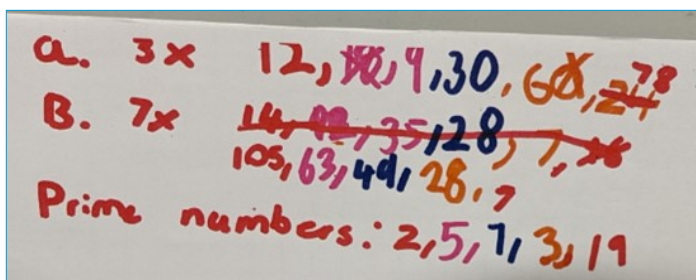 a. 3x 12, 9, 30, 60, 78
B. 7x 14, 42, 35, 28, 7,
105, 63, 49, 28, 7
Prime numbers: 2, 5, 7, 3, 19